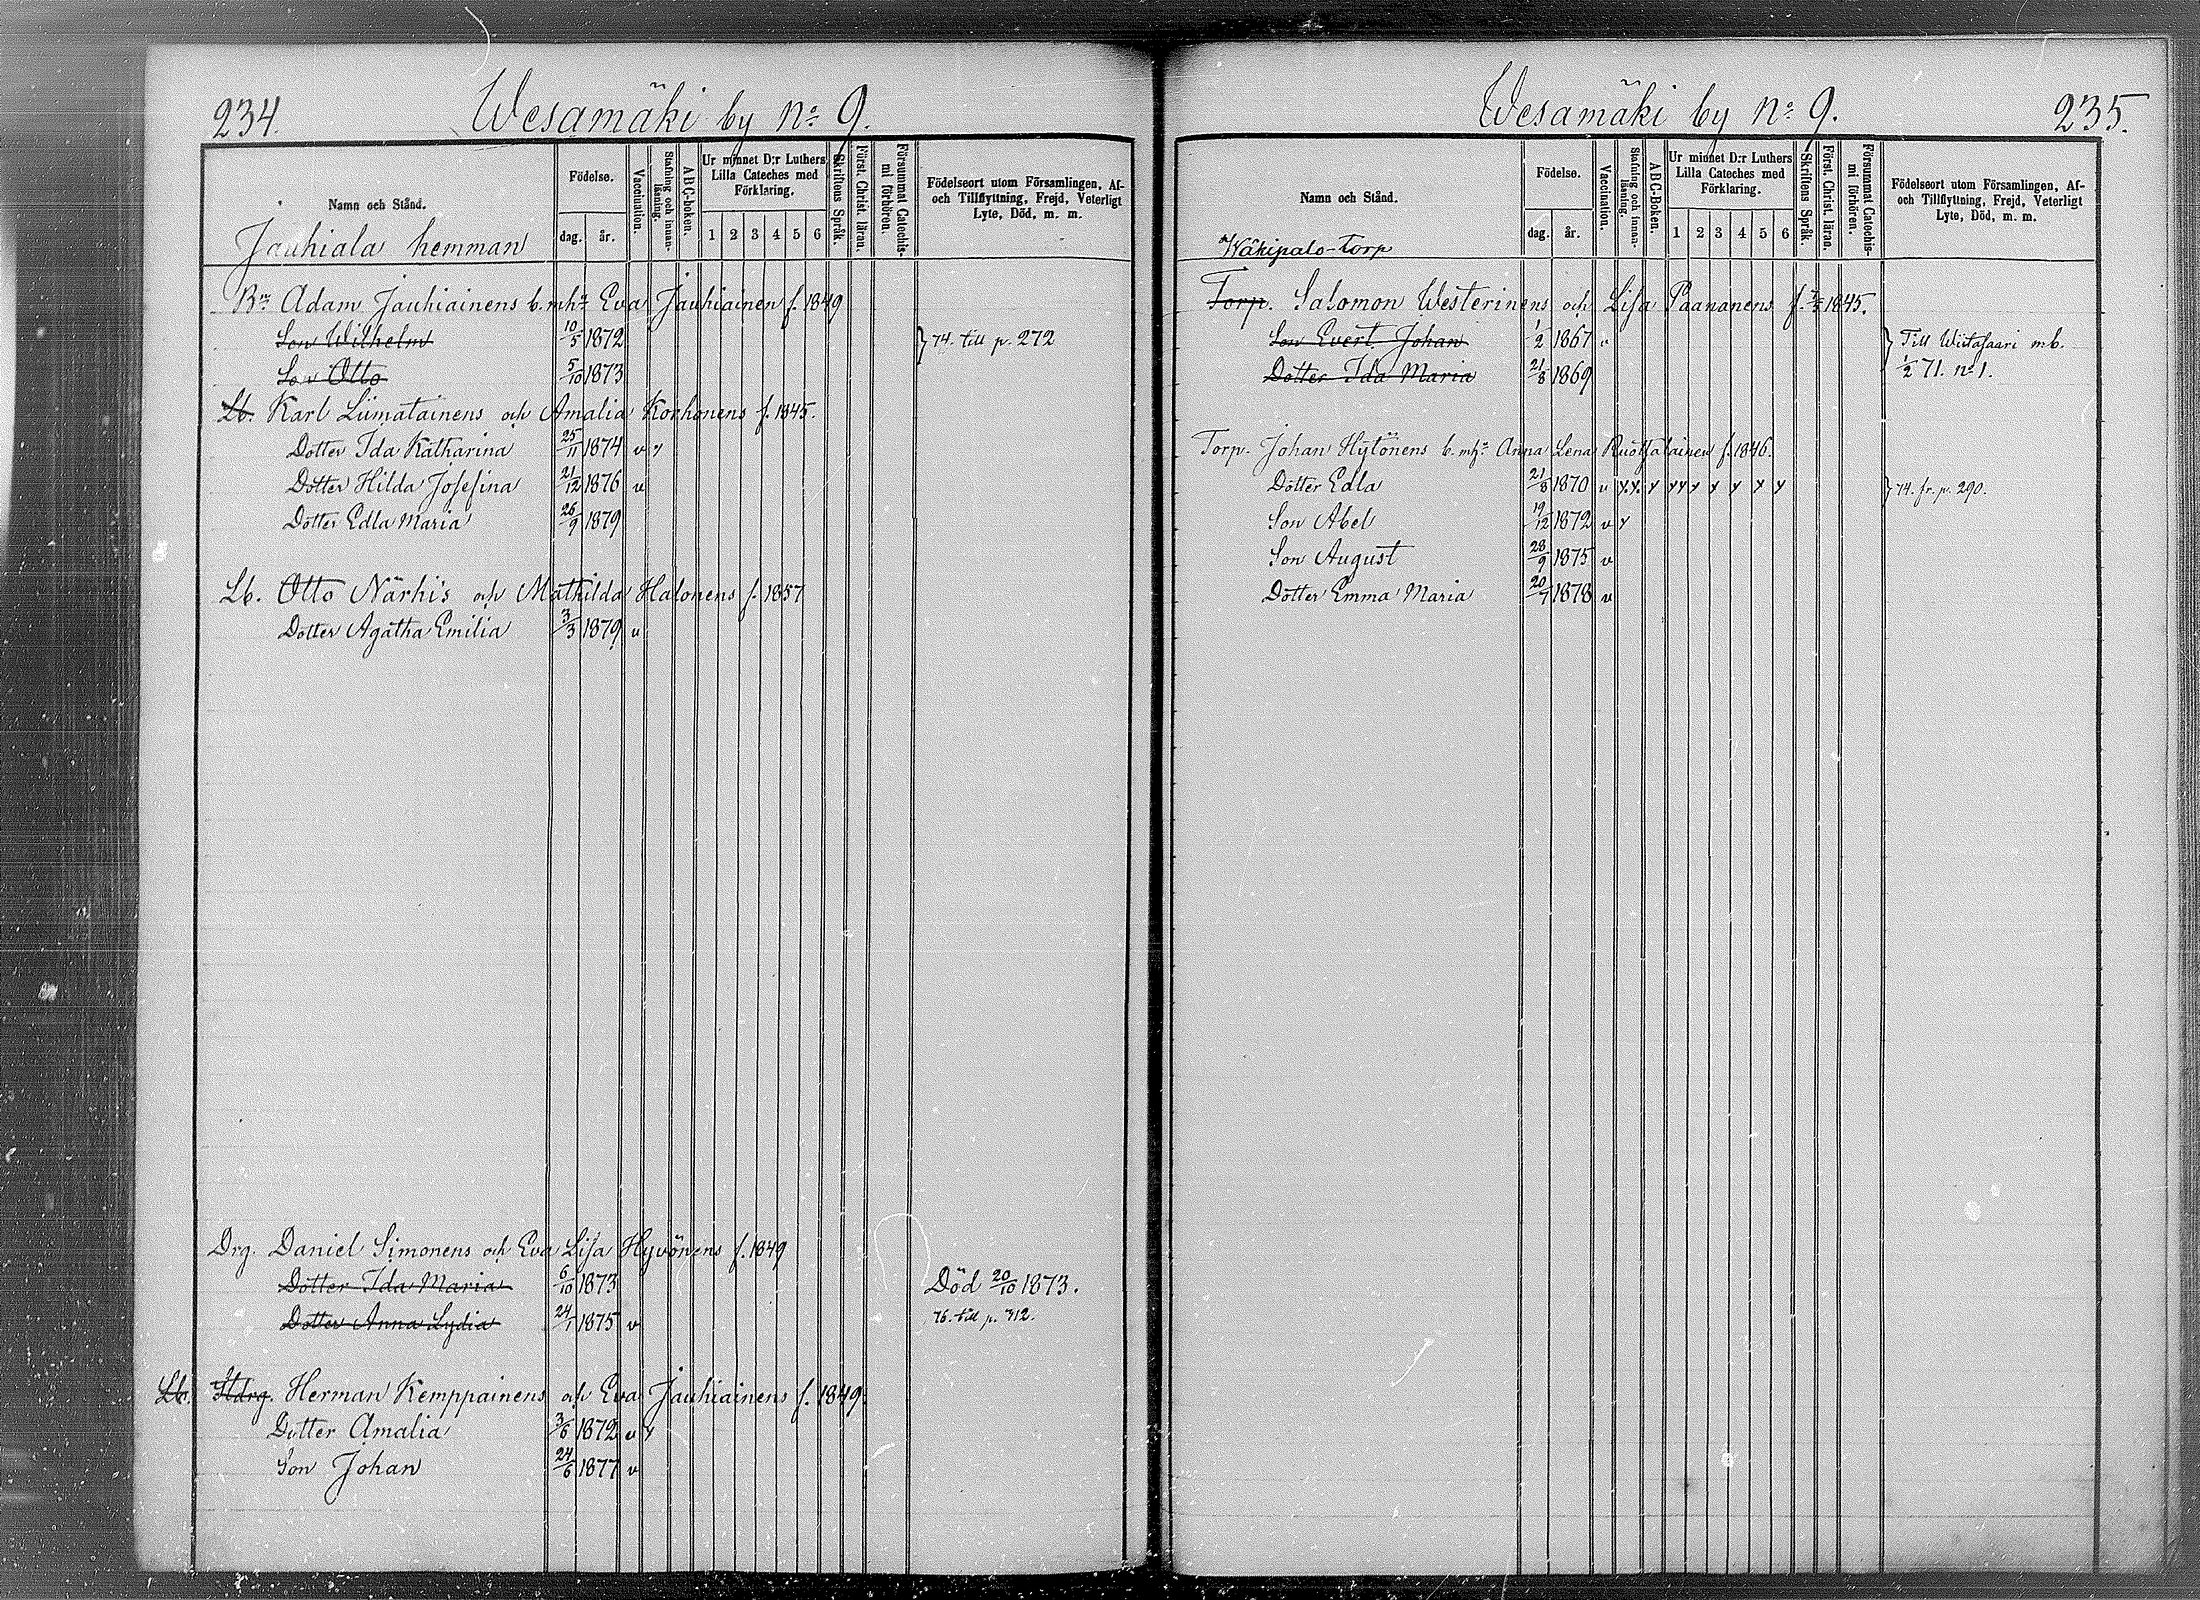 234. Wesamäki by No 9.
Namn och Stånd.
Födelse.
dag. år.
Vaccination.
Stafning och innan-
läsning.
A B C-boken.
Ur minnet D:r Luthers
Lilla Cateches med
Förklaring.
1 2 3 4 5 6
Skriftens Språk.
Först. Christ. läran.
Försummat Catechis-
mi förhören.
Födelseort utom Församlingen, Af-
och Tillflyttning, Frejd, Veterligt
Lyte, Död, m. m.
Jauhiala hemman
Bn Adam Jauhiainens b. mhu Eva Jauhiainen f. 1849
Son Wilhelm 10/5 1872 74. till p. 272
Son Otto 5/10 1873
Lb. Karl Liimatainens och Amalia Korhonens f. 1845.
Dotter Ida Katharina 25/11 1874 v y
Dotter Hilda Josefina 21/12 1876 v
Dotter Edla Maria 26/9 1879
Lb. Otto Närhis och Mathilda Halonens f. 1857
Dotter Agatha Emilia 3/3 1879 v
Drg. Daniel Simonens och Eva Lisa Hyvönens f. 1849
Dotter Ida Maria 6/10 1873 Död 20/10 1873.
Dotter Anna Lydia 24/1 1875 v 76. till p. 312.
Lb. Stdrg. Herman Kemppainens och Eva Jauhiainens f. 1849.
Dotter Amalia 3/6 1872 v y
Son Johan 24/6 1877 v
Wesamäki by No 9. 235.
Namn och Stånd.
Födelse.
dag. år.
Vaccination.
Stafning och innan-
läsning.
A B C-Boken.
Ur minnet D:r Luthers
Lilla Cateches med
Förklaring.
1 2 3 4 5 6
Skriftens Språk.
Först. Christ. läran.
Försummat Catechis-
mi förhören.
Födelseort utom Församlingen, Af-
och Tillflyttning, Frejd, Veterligt
Lyte, Död, m. m.
Wäkipalo-torp
Torp. Salomon Westerinens och Lisa Paananens f. 1845.
Son Evert Johan 1/2 1867 v Till Wiitasaari mb.
Dotter Ida Maria 21/8 1869 1/2 71. no 1.
Torp. Johan Hytönens b. mhu Anna Lena Ruotsalainen f. 1846.
Dotter Edla 21/8 1870 v y.y. y y y y y y y y 74. fr. p. 290.
Son Abel 19/12 1872 v y
Son August 28/9 1875 v
Dotter Emma Maria 20/7 1878 v